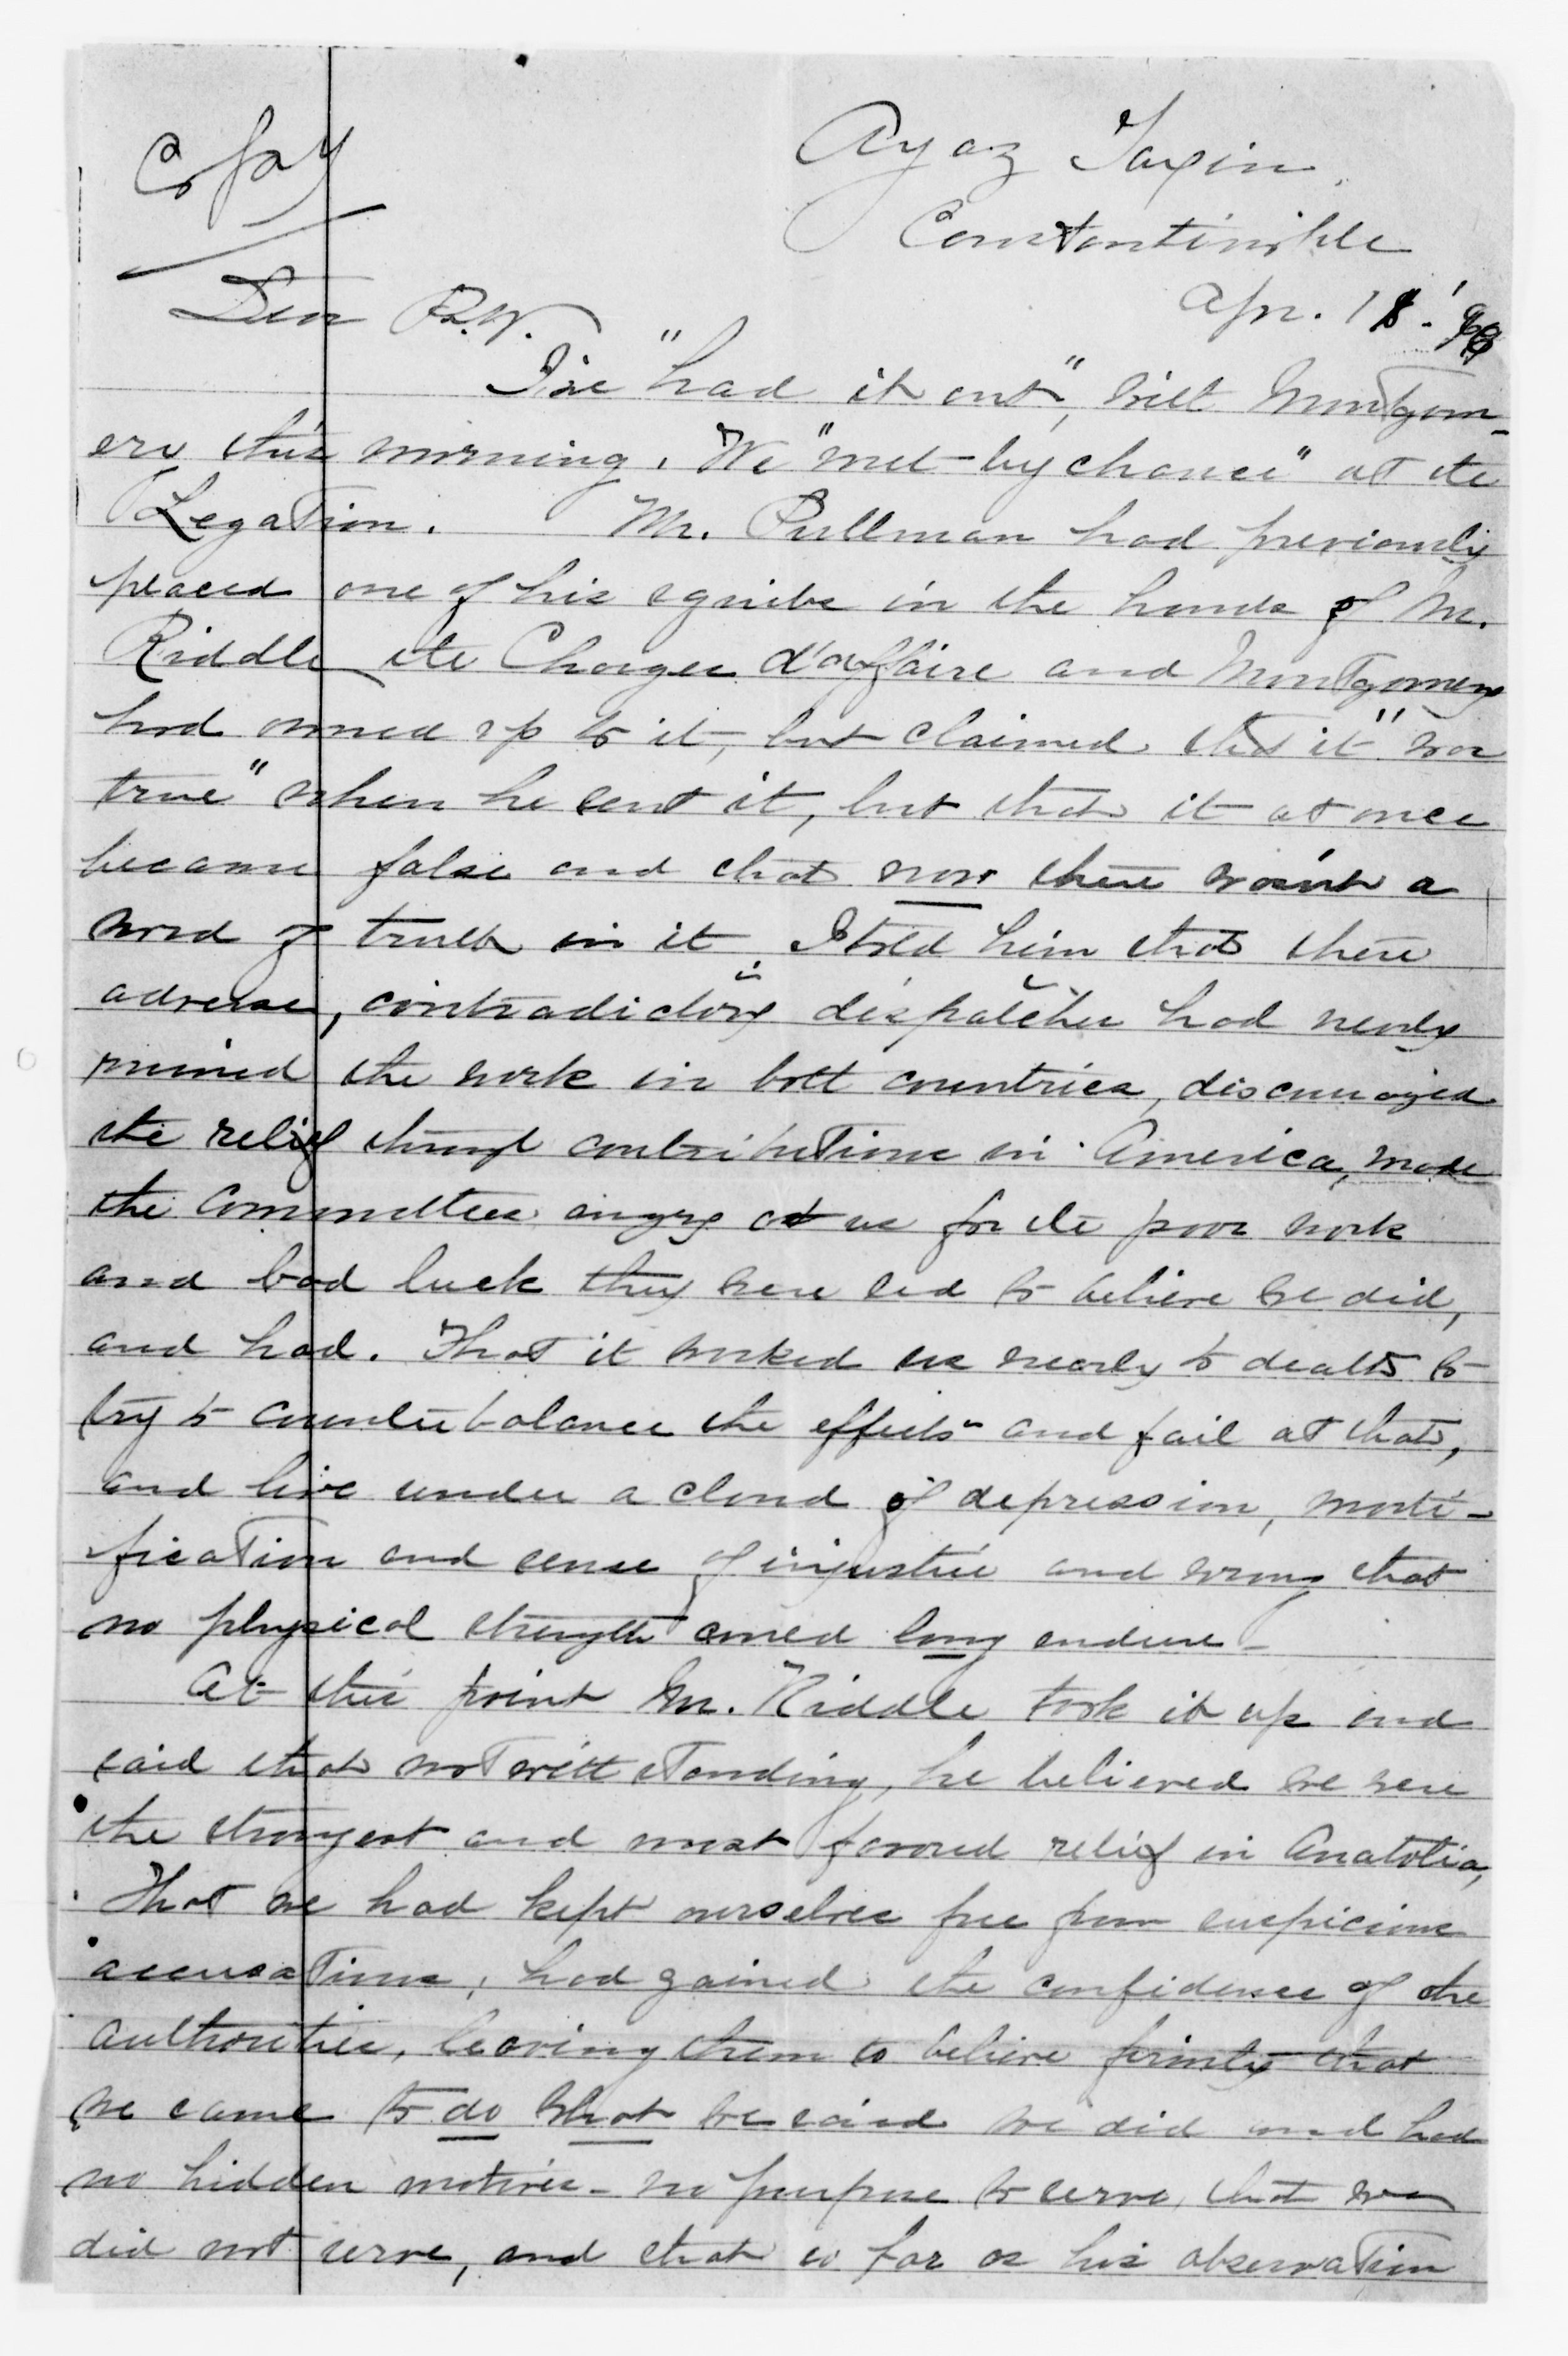 Copy
Ayaz Taxim,
Constantinople
Apr. 18. '96
Dear P.W.
I've "had it out", with Montgom-
ery this morning. We "met - by chance" at the
Legation. Mr. Pullman had previously
placed one of his squibs in the hands of Mr.
Riddle the Chargee d'affaire and Montgomery
had owned up to it, but claimed that it "was
true" when he sent it, but that it at once
became false and that now there was'nt a
word of truth in it. I told him that these
adverse, contradictory dispatches had nearly
ruined the work in both countries, discouraged
the relief through contributions in America, made
the Committees angry at us for the poor work
and bad luck they were led to believe we did,
and had. That it worked us nearly to death to
try to counterbalance the effects - and fail at that,
and live under a cloud of depression, morti-
fication and sense of injustice and wrong that
no physical strength could long endure -
At this point Mr. Riddle took it up and
said that notwithstanding, he believed we were
the strongest and most favored relief in Anatolia,
That we had kept ourselves free from suspicions
accusations, had gained the confidence of the
authorities, leaving them to believe firmly that
we came to do what we said we did and had
no hidden motives - no purpose to serve, that we
did not serve, and that so far as his observation